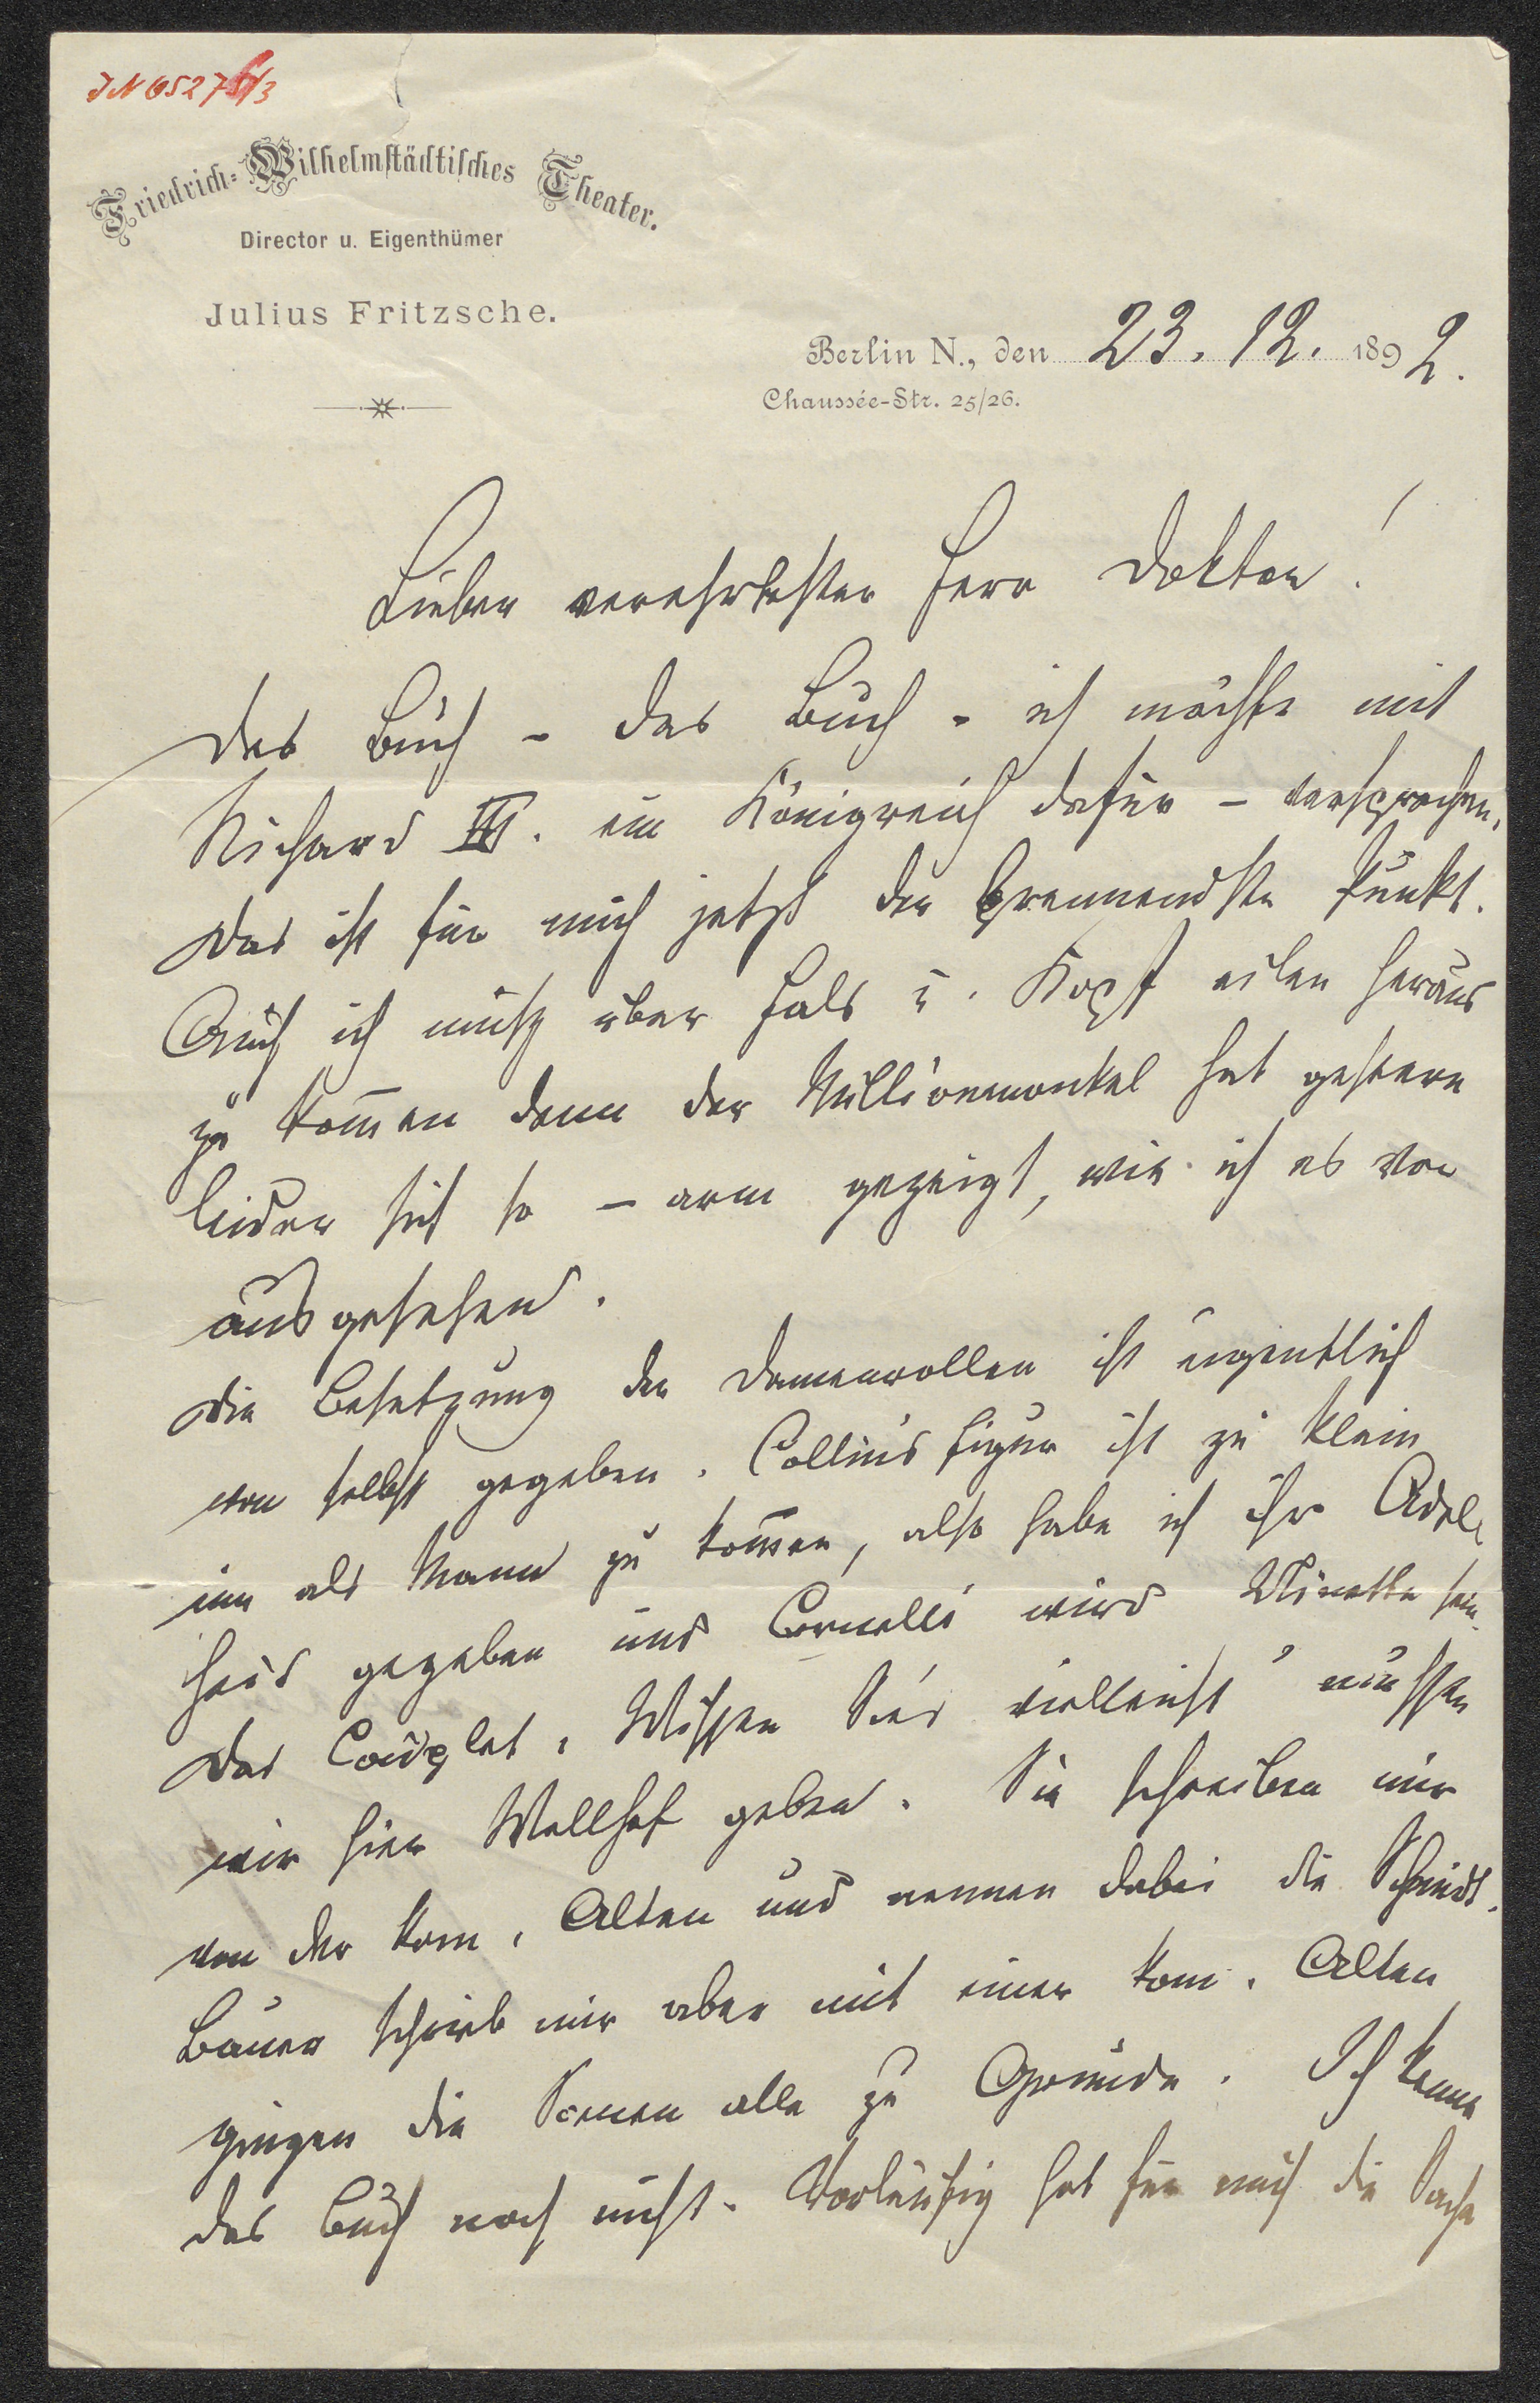 JN 65276/3
Friedrich-Wilhelmstädtisches Theater.
Director u. Eigenthümer
Julius Fritzsche.
Berlin N., den 23. 12. 1892.
Chaussée-Str. 25/26.
Lieber verehrtester Herr Doktor!
Das Buch - das Buch - ich möchte mit
Richard III. ein Königreich dafür - versprechen.
Das ist für mich jetzt der brennendste Punkt.
Auch ich muß über Hals u. Kopf eilen heraus
zu kom̄en denn der Millionenonkel hat gestern
leider sich so - arm gezeigt, wie ich es vor
ausgesehen.
Die Besetzung der Damenrollen ist eigentlich
von selbst gegeben. Collin's Figur ist zu klein
um als Mann zu kom̄en, also habe ich ihr Adel
heid gegeben und Cornelli wird Minette sein.
Das Couplet, Wissen Sie's vielleicht" müssen
wir hier Wellhof geben. Sie schreiben mir
von der kom. Alten und nennen dabei die Schmidt.
Bauer schrieb mir aber mit einer kom. Alten
gingen die Scenen alle zu Grunde. Ich kenne
das Buch noch nicht. Vorläufig hat für mich die Sache